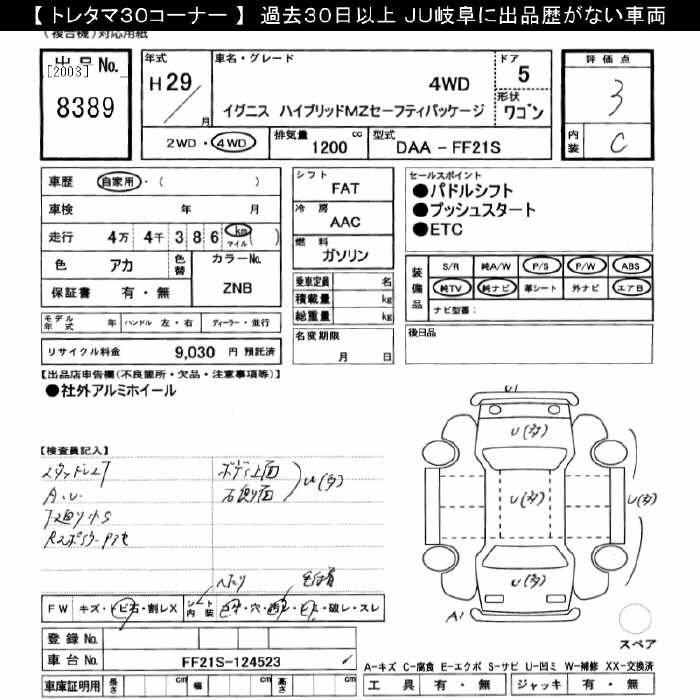 【 トレタマ30コーナー 】 過去30日以上 JU岐阜に出品歴がない車両
(複合機)対応用紙
出品No.
[2003]
8389
年式
H 29/月
車名・グレード
4WD
イグニス ハイブリッドMZセーフティパッケージ
ドア
5
形状
ワゴン
評価点
3
内装
C
2WD・4WD
排気量
1200 cc
型式
DAA - FF21S
車歴 自家用・( )
車検 年 月
走行 4万 4千 3 8 6 km マイル ( )
色 アカ
色替
カラーNo.
ZNB
保証書 有・無
モデル年式 年
ハンドル 左・右
ディーラー・並行
リサイクル料金 9,030 円 預託済
シフト
FAT
冷房
AAC
燃料
ガソリン
乗車定員 名
積載量 kg
総重量 kg
名変期限
月 日
セールスポイント
●パドルシフト
●プッシュスタート
●ETC
装備品
S/R 純A/W P/S P/W ABS
純TV 純ナビ 革シート 外ナビ エアB
ナビ型番:
後日品
【出品店申告欄(不良箇所・欠品・注意事項等)】
●社外アルミホイール
【検査員記入】
A.U.
ボディ上面
右側面
U(多)
下廻りサS
U1
U(多)
U(多)
U(多)
U(多)
A1
スペア
FW キズ・トビ石・割レX
シート内装 コゲ・穴・汚レ・シミ・破レ・スレ
登録No.
車台No. FF21S-124523
車庫証明用 長さ cm 幅 cm 高さ cm
A-キズ C-腐食 E-エクボ S-サビ U-凹ミ W-補修 XX-交換済
工具 有・無 ジャッキ 有・無